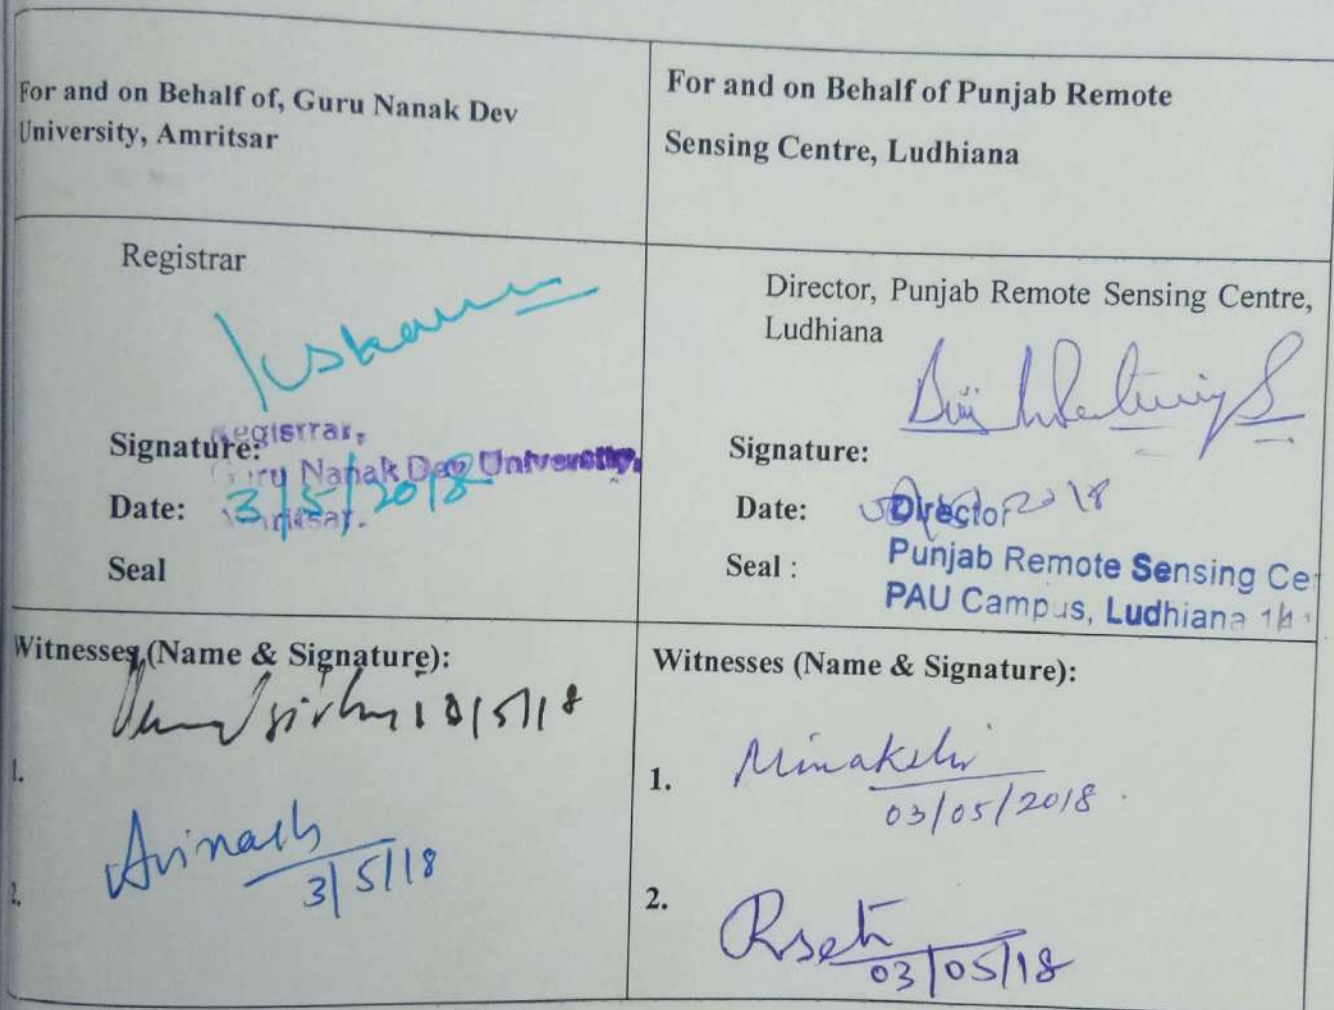 For and on Behalf of, Guru Nanak Dev
University, Amritsar
For and on Behalf of Punjab Remote
Sensing Centre, Ludhiana
Registrar
Signature:
Registrar,
Guru Nanak Dev University,
Date: 3/5/2018
Amritsar.
Seal
Director, Punjab Remote Sensing Centre,
Ludhiana
Signature:
Date: 2018
Director
Seal :
Punjab Remote Sensing Ce
PAU Campus, Ludhiana
Witnesses (Name & Signature):
1.
2. Avinash
3/5/18
Witnesses (Name & Signature):
1. Minakshi
03/05/2018
2.
03/05/18